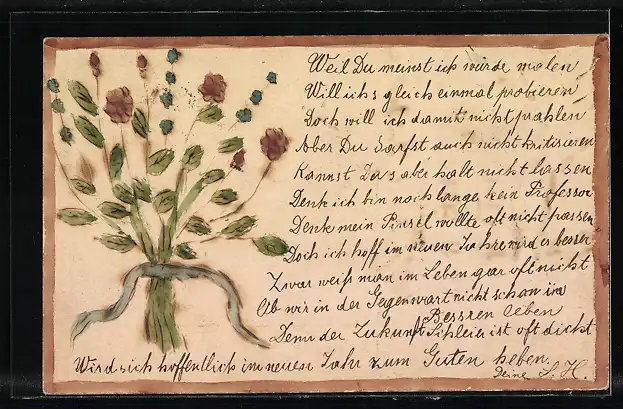 Weil Du meinst ich würde malen
Will ichs gleich einmal probieren
Doch will ich damit nicht prahlen
Aber Du darfst auch nicht kritisieren
Kannst Das aber halt nicht lassen
Denk ich bin noch lange kein Professor
Denk mein Pinsel wollte oft nicht passen
Doch ich hoff im neuen Jahre wird es besser
Zwar weiß man im Leben gar oft nicht
Ob wir in der Gegenwart nicht schon im
Bessren leben
Denn der Zukunft Schleier ist oft dicht
Wird sich hoffentlich im neuen Jahr zum Guten heben.
Deine S. H.